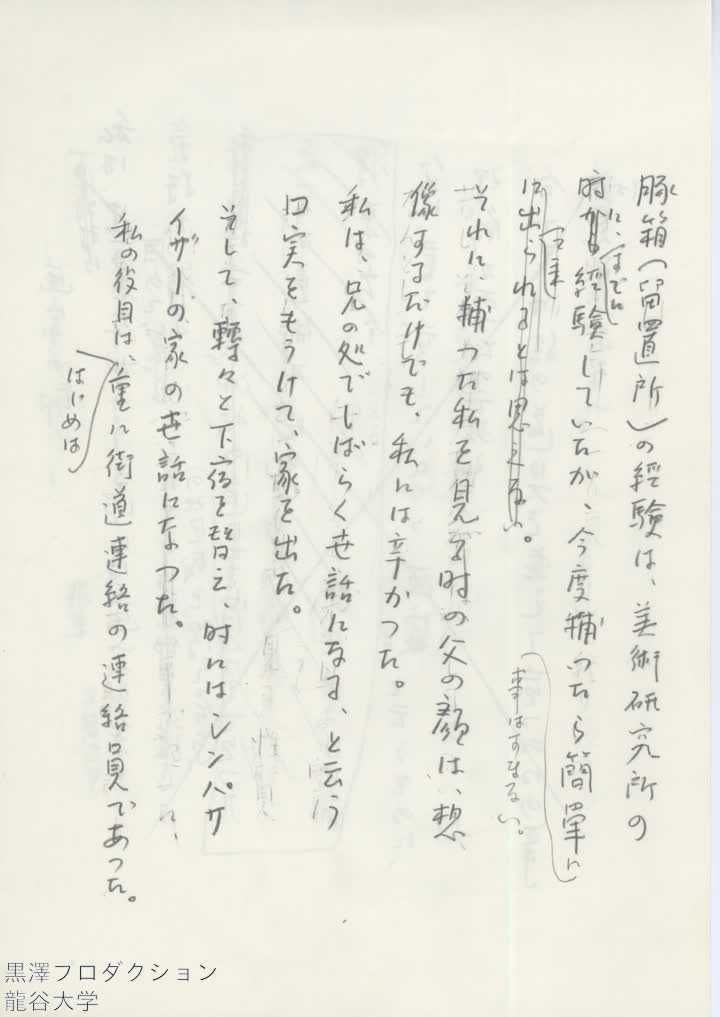 豚箱(留置所)の經驗は、美術研究所の
時に、すでに經驗していたが、今度捕つたら簡單に
は出られるとは思えない。
事はすまない。
それに、捕つた私を見る時の父の顔は、想
像するだけでも、私には辛かつた。
私は、兄の処でしばらく世話になる、と云う
口実をもうけて、家を出た。
そして、轉々と下宿を替え、時にはシンパサ
イザーの家の世話になつた。
私の役目は、重に街道連絡の連絡員であつた。
はじめは
黒澤プロダクション
龍谷大学